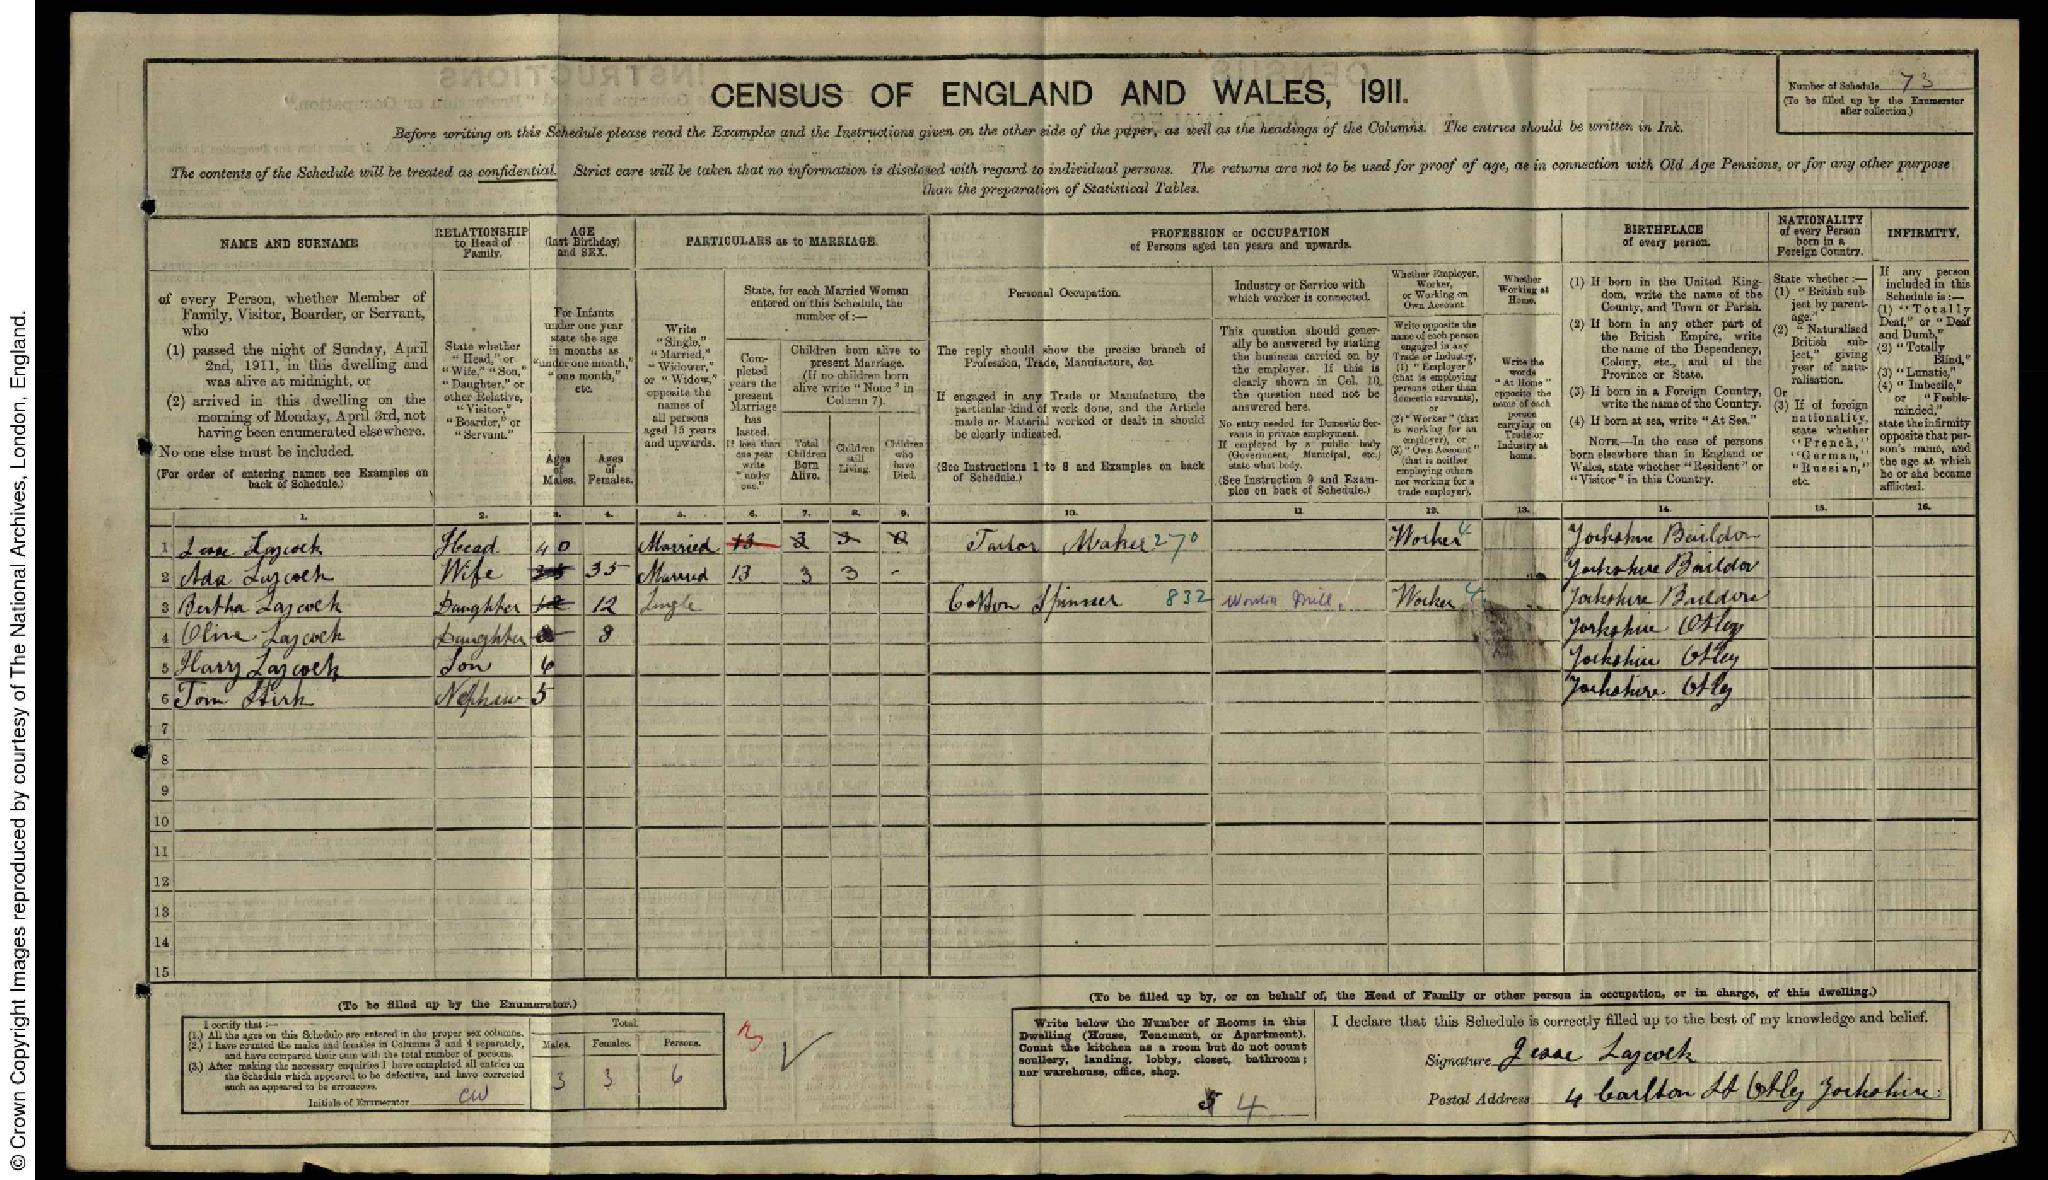 © Crown Copyright Images reproduced by courtesy of The National Archives, London, England.
CENSUS OF ENGLAND AND WALES, 1911.
Number of Schedule 73
(To be filled up by the Enumerator
after collection.)
Before writing on this Schedule please read the Examples and the Instructions given on the other side of the paper, as well as the headings of the Columns. The entries should be written in Ink.
The contents of the Schedule will be treated as confidential. Strict care will be taken that no information is disclosed with regard to individual persons. The returns are not to be used for proof of age, as in connection with Old Age Pensions, or for any other purpose
than the preparation of Statistical Tables.
NAME AND SURNAME
of every Person, whether Member of
Family, Visitor, Boarder, or Servant,
who
(1) passed the night of Sunday, April
2nd, 1911, in this dwelling and
was alive at midnight, or
(2) arrived in this dwelling on the
morning of Monday, April 3rd, not
having been enumerated elsewhere.
No one else must be included.
(For order of entering names see Examples on
back of Schedule.)
RELATIONSHIP
to Head of
Family.
State whether
"Head," or
"Wife," "Son,"
"Daughter," or
other Relative,
"Visitor,"
"Boarder," or
"Servant."
AGE
(last Birthday)
and SEX.
For Infants
under one year
state the age
in months as
"under one month,"
"one month,"
etc.
Ages
of
Males.
Ages
of
Females.
PARTICULARS as to MARRIAGE.
Write
"Single,"
"Married,"
"Widower,"
or "Widow,"
opposite the
names of
all persons
aged 15 years
and upwards.
State, for each Married Woman
entered on this Schedule, the
number of:—
Com-
pleted
years the
present
Marriage
has
lasted.
If less than
one year
write
"under
one."
Children born alive to
present Marriage.
(If no children born
alive write "None" in
Column 7).
Total
Children
Born
Alive.
Children
still
Living.
Children
who
have
Died.
PROFESSION or OCCUPATION
of Persons aged ten years and upwards.
Personal Occupation.
The reply should show the precise branch of
Profession, Trade, Manufacture, &c.
If engaged in any Trade or Manufacture, the
particular kind of work done, and the Article
made or Material worked or dealt in should
be clearly indicated.
(See Instructions 1 to 8 and Examples on back
of Schedule.)
Industry or Service with
which worker is connected.
This question should gener-
ally be answered by stating
the business carried on by
the employer. If this is
clearly shown in Col. 10,
the question need not be
answered here.
No entry needed for Domestic Ser-
vants in private employment.
If employed by a public body
(Government, Municipal, etc.)
state what body.
(See Instruction 9 and Exam-
ples on back of Schedule.)
Whether Employer,
Worker,
or Working on
Own Account.
Write opposite the
name of each person
engaged in any
Trade or Industry,
(1) "Employer"
(that is employing
persons other than
domestic servants),
or
(2) "Worker" (that
is working for an
employer), or
(3) "Own Account"
(that is neither
employing others
nor working for a
trade employer).
Whether
Working at
Home.
Write the
words
"At Home"
opposite the
name of each
person
carrying on
Trade or
Industry at
home.
BIRTHPLACE
of every person.
(1) If born in the United King-
dom, write the name of the
County, and Town or Parish.
(2) If born in any other part of
the British Empire, write
the name of the Dependency,
Colony, etc., and of the
Province or State.
(3) If born in a Foreign Country,
write the name of the Country.
(4) If born at sea, write "At Sea."
NOTE.—In the case of persons
born elsewhere than in England or
Wales, state whether "Resident" or
"Visitor" in this Country.
NATIONALITY
of every Person
born in a
Foreign Country.
State whether:—
(1) "British sub-
ject by parent-
age."
(2) "Naturalised
British sub-
ject," giving
year of natu-
ralisation.
Or
(3) If of foreign
nationality,
state whether
"French,"
"German,"
"Russian,"
etc.
INFIRMITY.
If any person
included in this
Schedule is:—
(1) "Totally
Deaf," or "Deaf
and Dumb,"
(2) "Totally
Blind,"
(3) "Lunatic,"
(4) "Imbecile,"
or "Feeble-
minded,"
state the infirmity
opposite that per-
son's name, and
the age at which
he or she became
afflicted.
1. 2. 3. 4. 5. 6. 7. 8. 9. 10. 11 12. 13. 14. 15. 16.
1 Jesse Laycock Head 40 Married 13 3 3 0 Tailor Maker 270 Worker 4 Yorkshire Baildon
2 Ada Laycock Wife 35 35 Married 13 3 3 - Yorkshire Baildon
3 Bertha Laycock Daughter 12 12 Single Cotton Spinner 832 Worker 4 Yorkshire Baildon
4 Olive Laycock Daughter 8 8 Yorkshire Otley
5 Harry Laycock Son 6 Yorkshire Otley
6 Tom Stirk Nephew 5 Yorkshire Otley
7
8
9
10
11
12
13
14
15
(To be filled up by the Enumerator.)
I certify that:—
(1.) All the ages on this Schedule are entered in the proper sex columns.
(2.) I have counted the males and females in Columns 3 and 4 separately,
and have compared their sum with the total number of persons.
(3.) After making the necessary enquiries I have completed all entries on
the Schedule which appeared to be defective, and have corrected
such as appeared to be erroneous.
Initials of Enumerator CW
Total.
Males. Females. Persons.
3 3 6
3
(To be filled up by, or on behalf of, the Head of Family or other person in occupation, or in charge, of this dwelling.)
Write below the Number of Rooms in this
Dwelling (House, Tenement, or Apartment).
Count the kitchen as a room but do not count
scullery, landing, lobby, closet, bathroom;
nor warehouse, office, shop.
4
I declare that this Schedule is correctly filled up to the best of my knowledge and belief.
Signature Jesse Laycock
Postal Address 4 Carlton St Otley Yorkshire.